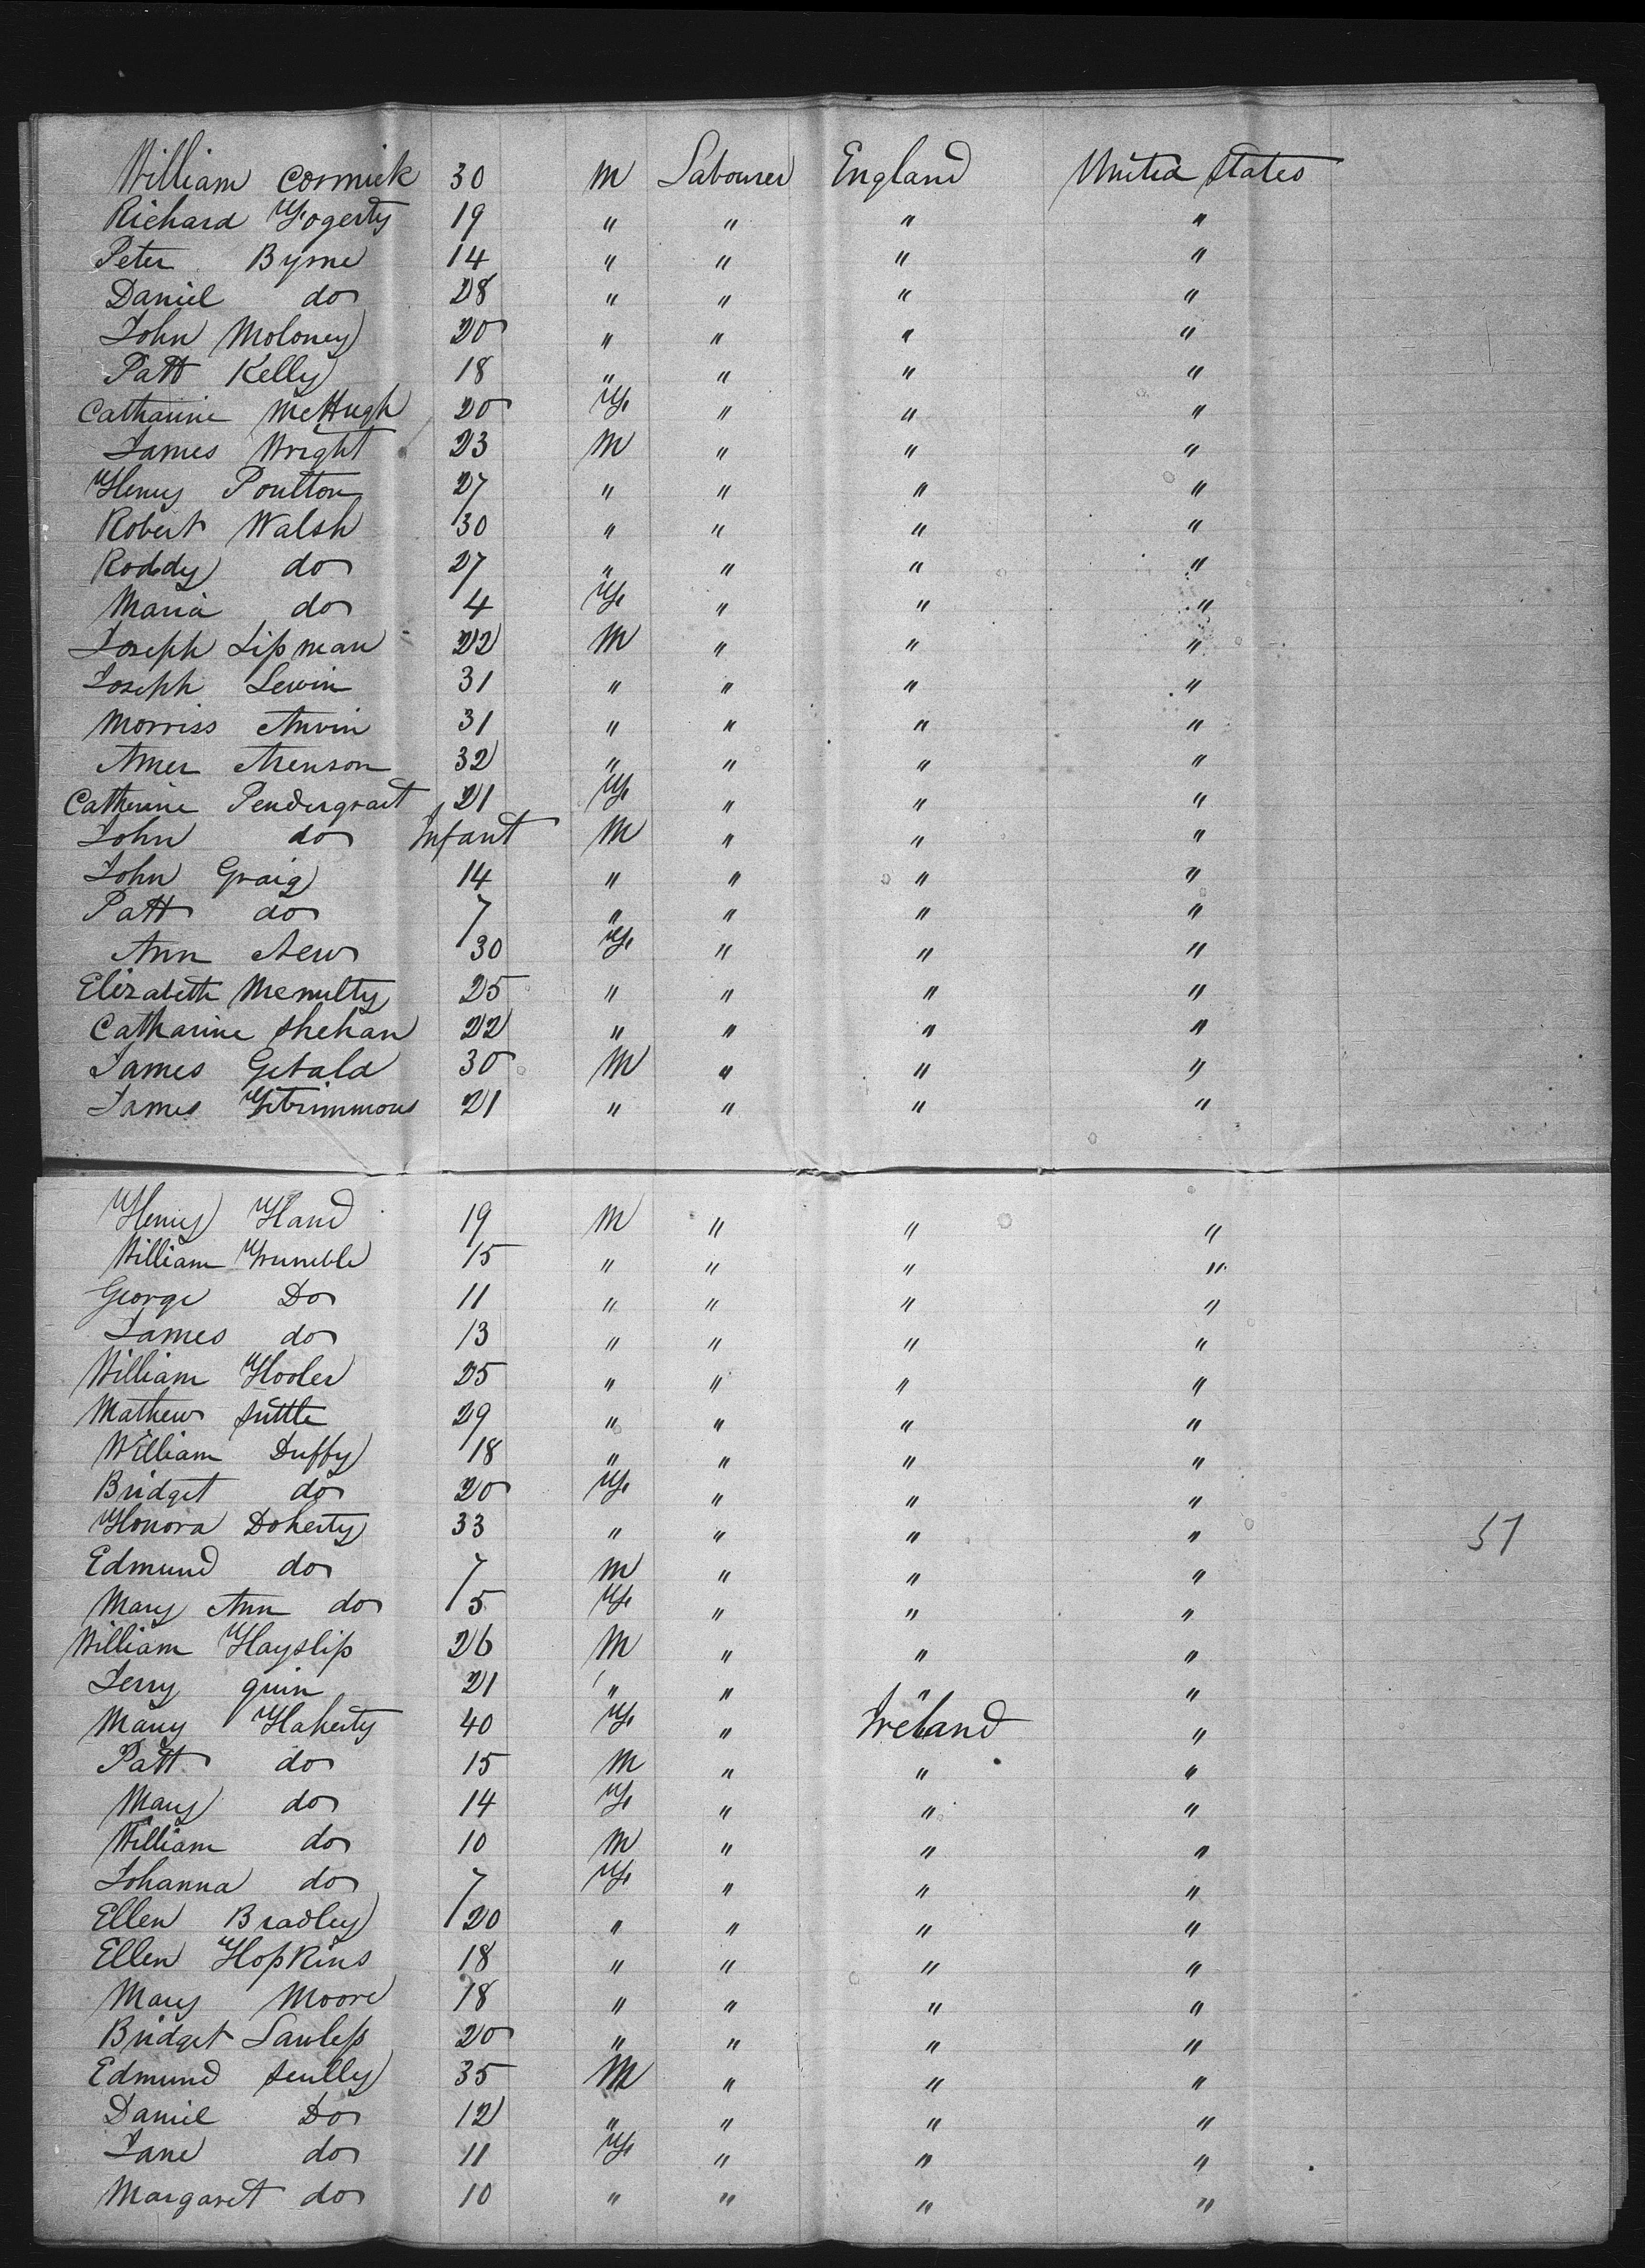 William Cormick 30 M Labourer England United States
Richard Fogerty 19 " " " "
Peter Byrne 14 " " " "
Daniel do 28 " " " "
John Moloney 20 " " " "
Patt Kelly 18 " " " "
Catharine McHugh 20 F " " "
James Wright 23 M " " "
Henry Poulton 27 " " " "
Robert Walsh 30 " " " "
Roddy do 27 " " " "
Maria do 4 F " " "
Joseph Lipman 22 M " " "
Joseph Lewin 31 " " " "
Morriss 31 " " " "
Amer Arenson 32 " " " "
Catherine Pendergrast 21 F " " "
John do Infant M " " "
John Graig 14 " " " "
Patt do 7 " " " "
Ann 30 F " " "
Elizabeth Mcnulty 25 " " " "
Catharine Shehan 22 " " " "
James 30 M " " "
James 21 " " " "
Henry Hand 19 M " " "
William 15 " " " "
George Do 11 " " " "
James do 13 " " " "
William Hooler 25 " " " "
Mathew Suttle 29 " " " "
William Duffy 18 " " " "
Bridget do 20 F " " "
Honora Doherty 33 " " " "
Edmund do 7 M " " "
Mary Ann do 5 F " " "
William Hayslip 26 M " " "
Jerry quin 21 " " " "
Mary Flaherty 40 F " Ireland "
Patt do 15 M " " "
Mary do 14 F " " "
William do 10 M " " "
Johanna do 7 F " " "
Ellen Bradley 20 " " " "
Ellen Hopkins 18 " " " "
Mary Moore 18 " " " "
Bridget Lawless 20 " " " "
Edmund Scully 35 M " " "
Daniel Do 12 " " " "
Jane do 11 F " " "
Margaret do 10 " " " "
51